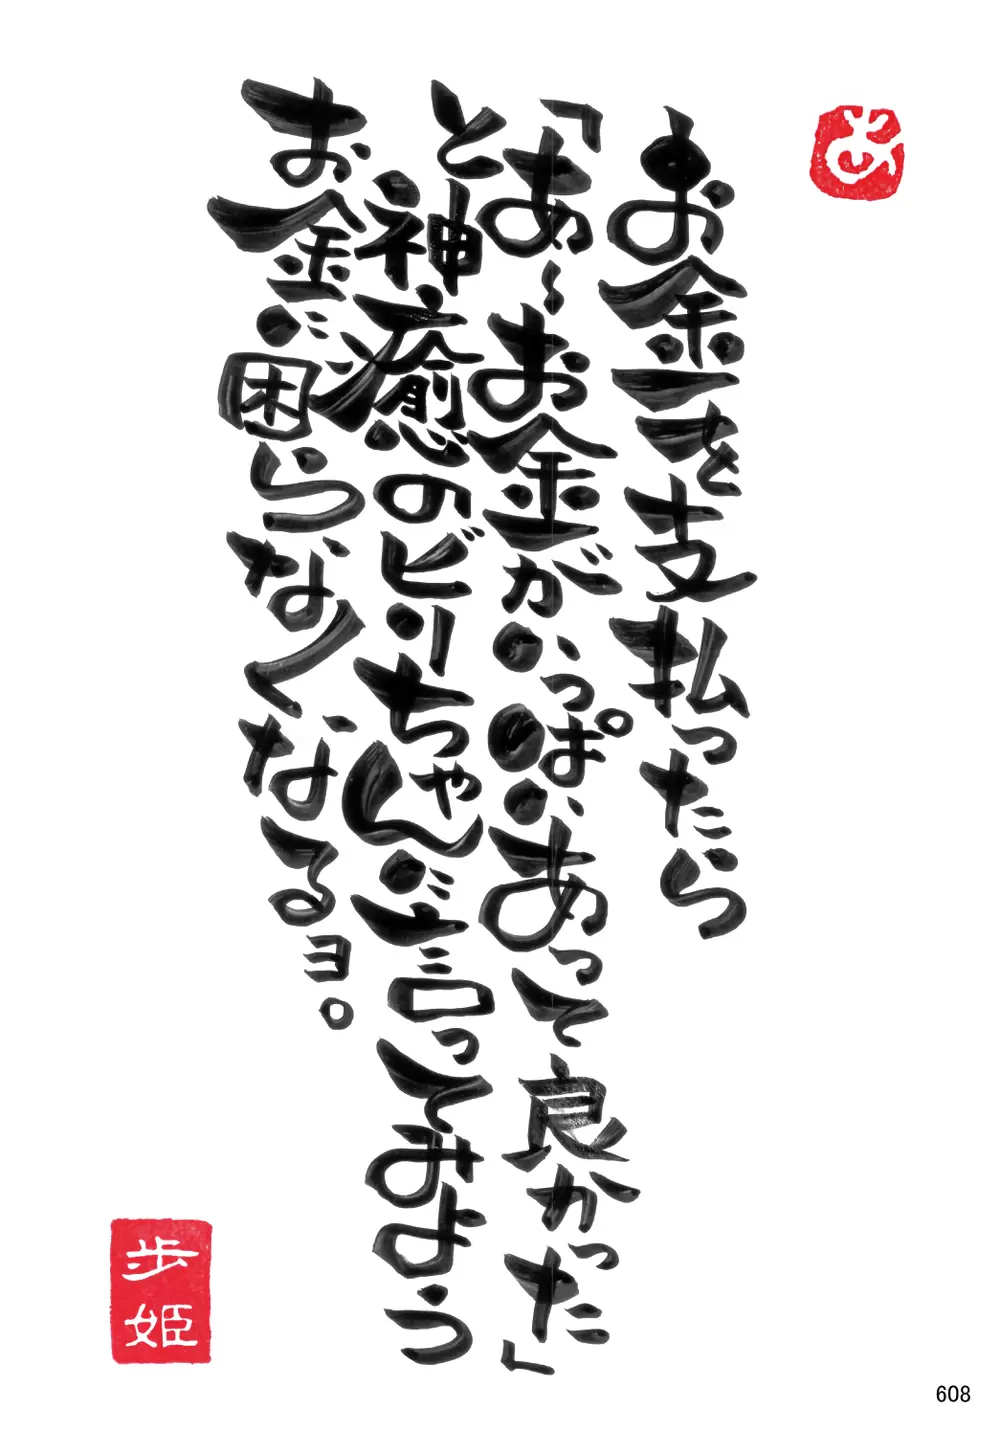 あ
お金を支払ったら
「あ～お金がいっぱいあって良かった」
と神癒のビリちゃんに言ってみよう
お金に困らなくなるヨ。
歩姫
608